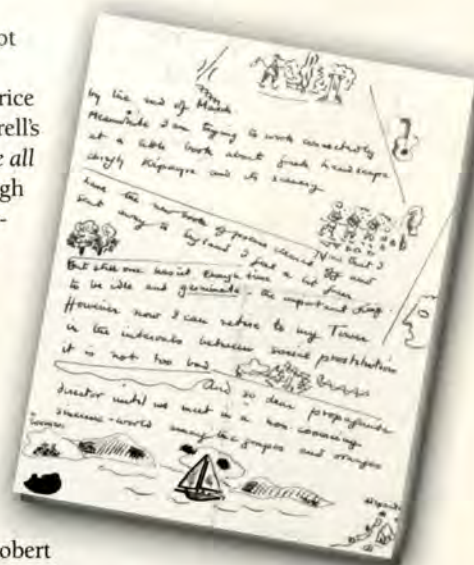 ot
rice
rell's
e all
gh
-
by the end of March
Meanwhile I am trying to work connectedly
at a little book about Greek landscape
chiefly and its scenery
Now that I
have the new book of poems cleared off and
sent away to England I feel a lot freer
But still one hasn't enough time
to be idle and germinate - the important thing.
However now I can retire to my Tower
in the intervals between social prostitution
it is not too bad
And so dear propaganda
director until we meet in a non-coming
among the grapes and oranges
obert